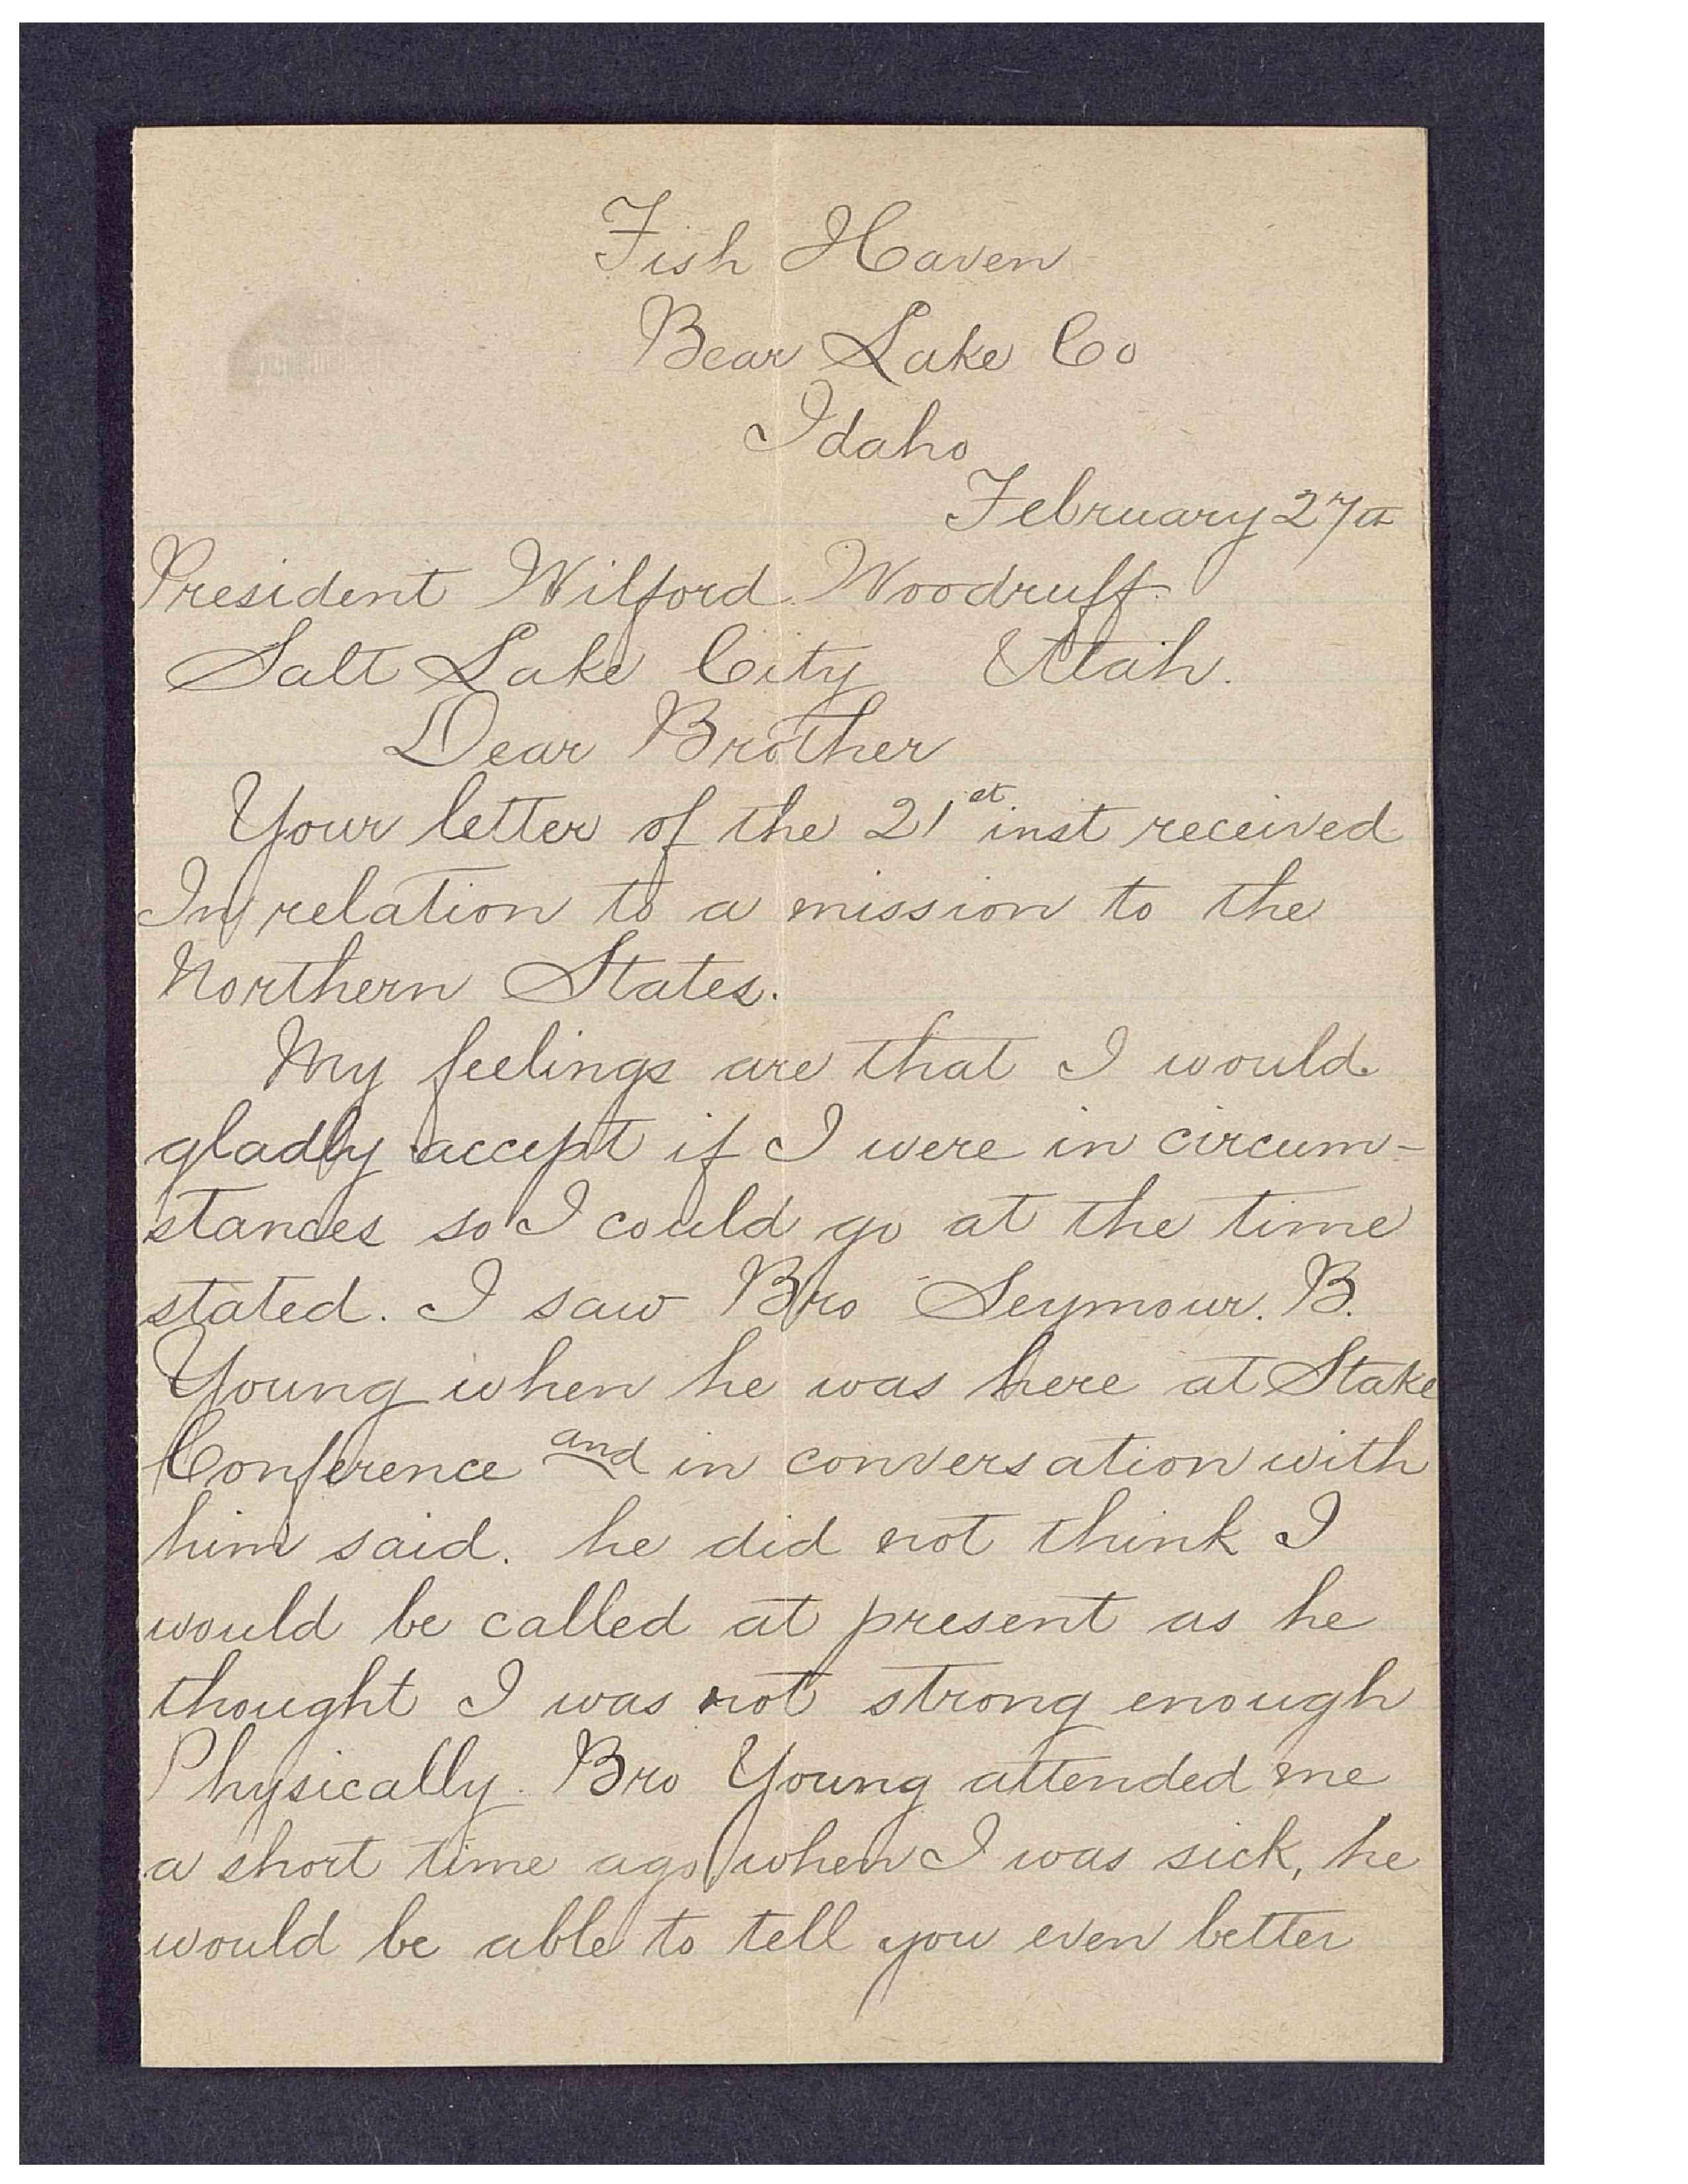 Fish Haven
Bear Lake Co
Idaho
February 27th
President Wilford Woodruff.
Salt Lake City Utah.
Dear Brother
Your letter of the 21st inst received
In relation to a mission to the
Northern States.
My feelings are that I would
gladly accept if I were in circum-
stances so I could go at the time
stated. I saw Bro Seymour. B.
Young when he was here at Stake
Conference and in conversation with
him said. he did not think I
would be called at present as he
thought I was not strong enough
Physically. Bro Young attended me
a short time ago when I was sick, he
would be able to tell you even better